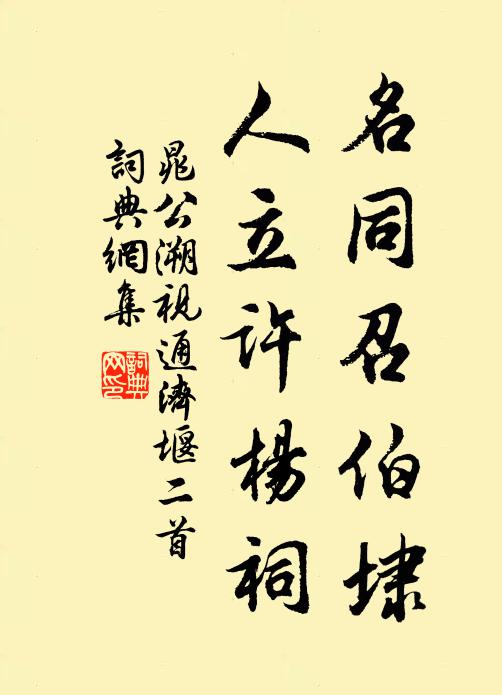 名同召伯埭
人立許楊祠
晁公溯視通濟堰二首
詞典網集
詞典網印